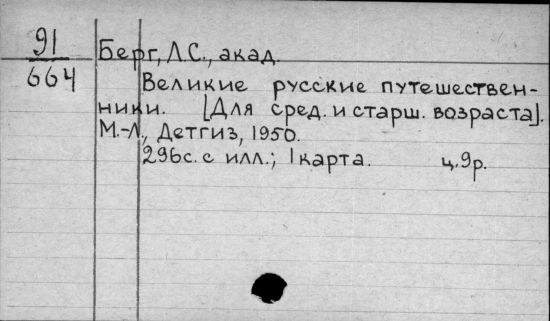 91
664
Берг, Л.С., акад.
Великие русские путешествен-
ники. [Для сред. и старш. возраста].
М.-Л., Детгиз, 1950.
296с. с илл.; 1 карта. ц. 9р.